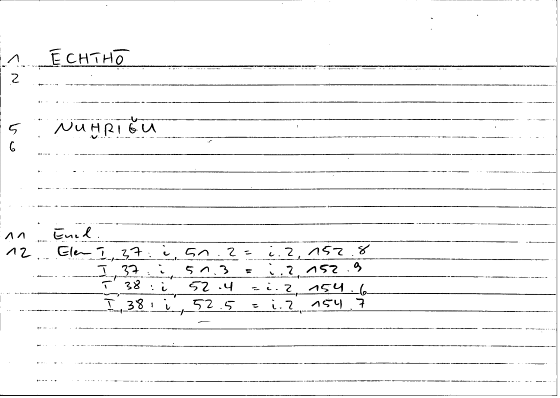 1 ĒCHTHŌ
2
5 NUḪRIĞU
6
11 Eucl.
12 Elem I, 37 : i, 51.2 = i.2, 152.8
I, 37 : i, 51.3 = i.2, 152.9
I, 38 : i, 52.4 = i.2, 154.6
I, 38 : i, 52.5 = i.2, 154.7